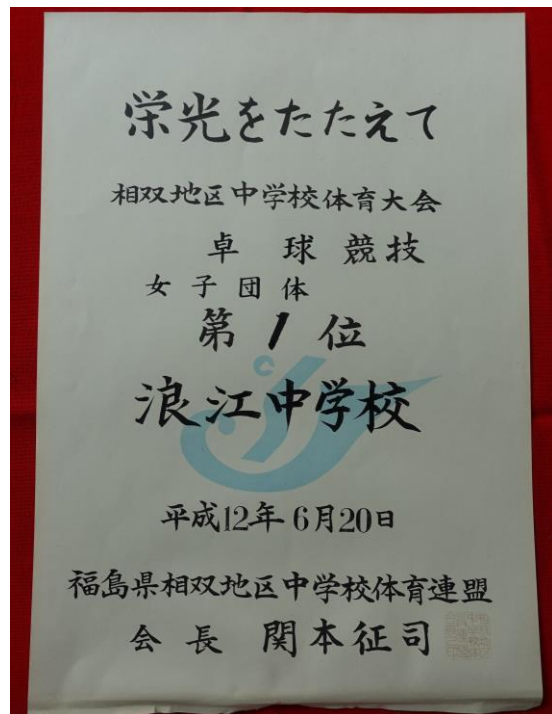 栄光をたたえて
相双地区中学校体育大会
卓球競技
女子団体
第1位
浪江中学校
平成12年6月20日
福島県相双地区中学校体育連盟
会長 関本征司